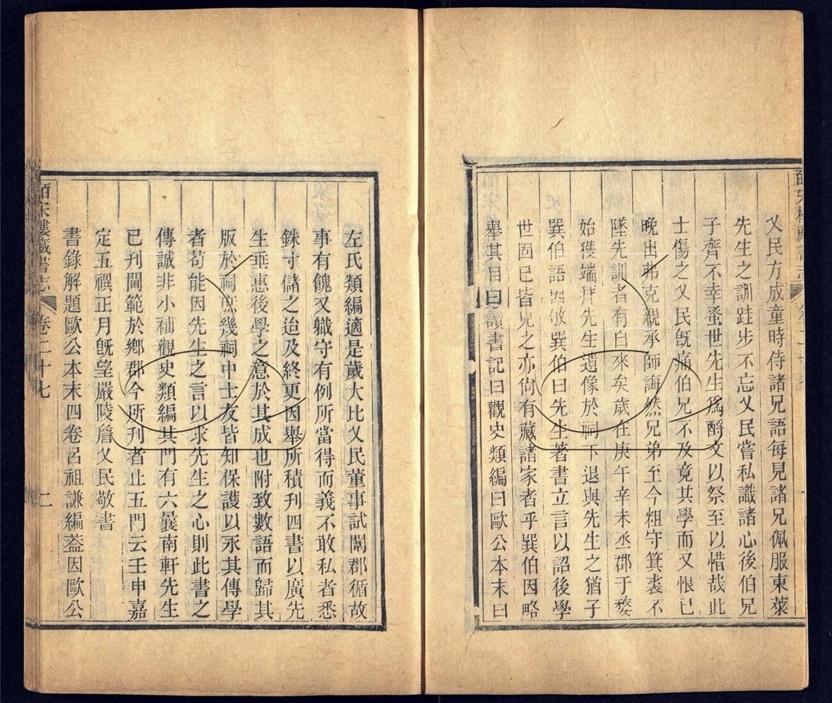 乂民方成童時侍諸兄語每見諸兄佩服東萊
先生之訓跬步不忘乂民嘗私識諸心後伯兄
子齊不幸蚤世先生爲酹文以祭至以惜哉此
士傷之乂民旣痛伯兄不及竟其學而又恨已
晚出弗克親承師誨然兄弟至今粗守箕裘不
墜先訓者有自來矣歲在庚午辛未丞郡于婺
始獲端拜先生遺像於祠下退與先生之猶子
巽伯語因叩巽伯曰先生著書立言以詔後學
世固已皆見之亦尚有藏諸家者乎巽伯因略
舉其目曰讀書記曰觀史類編曰歐公本末曰
皕宋樓藏書志 卷二十七 二
左氏類編適是歲大比乂民董事試闈郡循故
事有餽又職守有例所當得而義不敢私者悉
銖寸儲之迨及終更因舉所積刊四書以廣先
生垂惠後學之意於其成也附致數語而歸其
版於祠庶幾祠中士友皆知保護以永其傳學
者苟能因先生之言以求先生之心則此書之
傳誠非小補觀史類編其門有六曩南軒先生
已刊閫範於鄉郡今所刊者止五門云壬申嘉
定五禩正月旣望嚴陵詹乂民敬書
書錄解題歐公本末四卷呂祖謙編葢因歐公